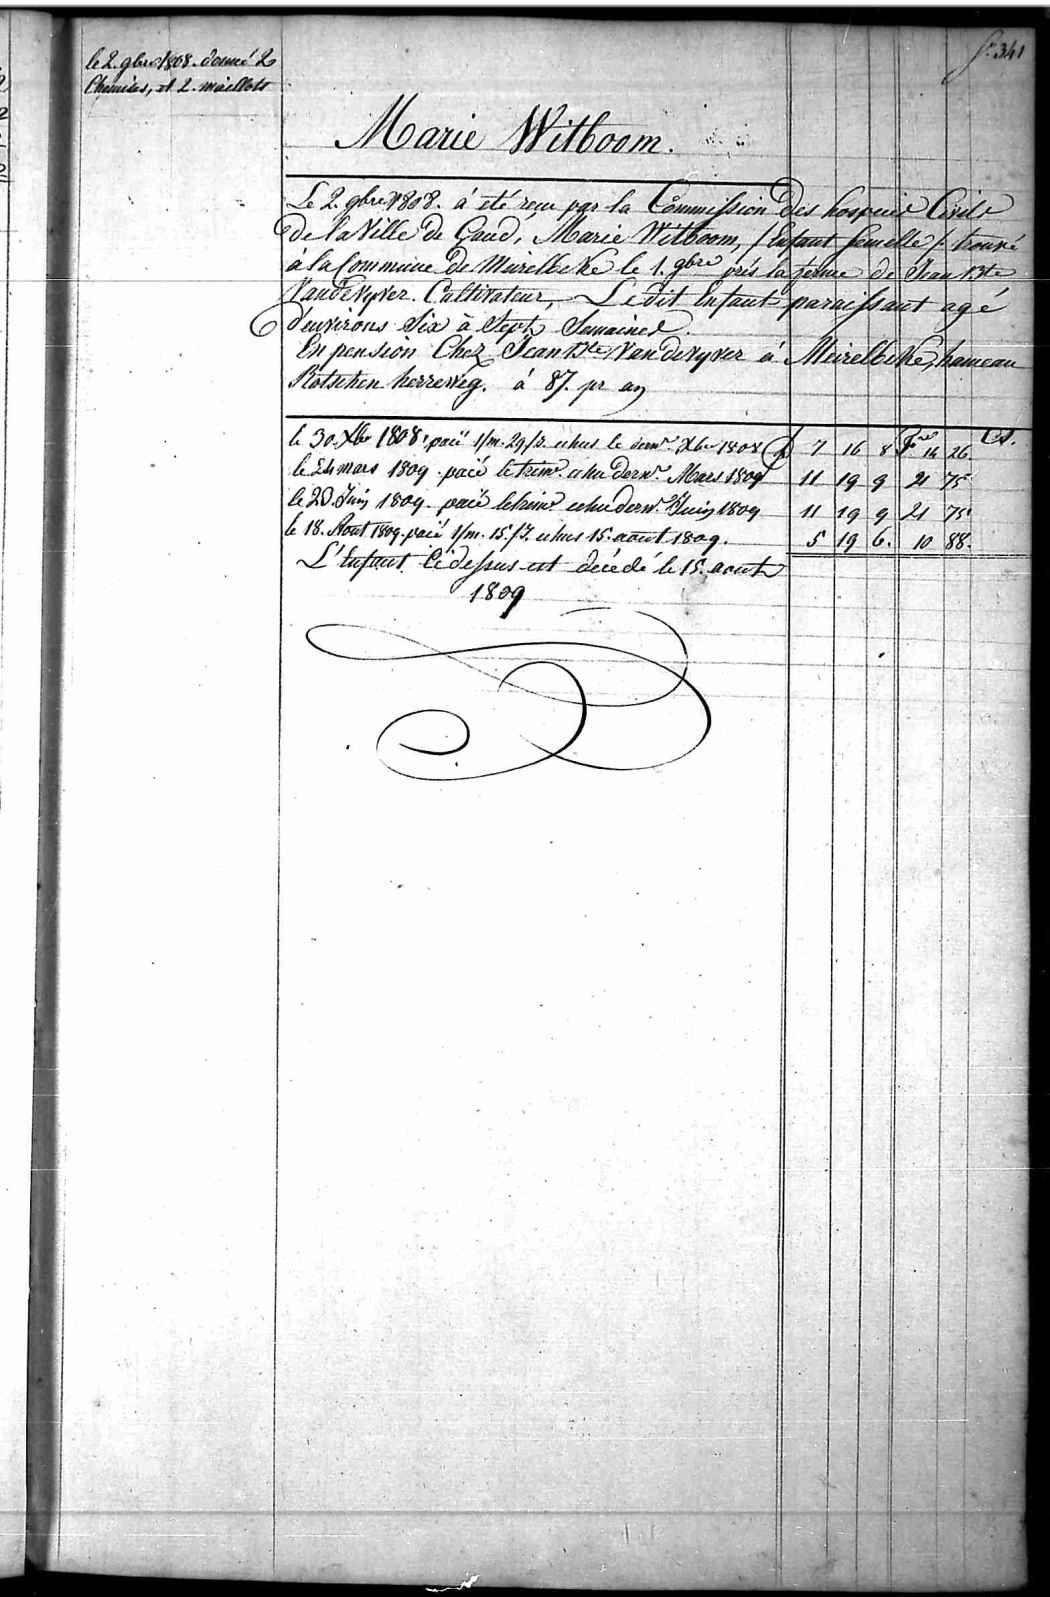 f.° 341
le 2. 9bre 1808. donné 2
Chemises, et 2. maillots
Marie Witboom.
Le 2. 9bre 1808. á été recu par la Commission des hospices Civils
de la Ville de Gand, Marie Witboom, /: Enfant femelle /: trouvé
à la Commune de Meirelbeke le 1. 9bre près la ferme de Jean Bte
Vandevyver. Cultivateur, Le dit Enfant paraissant agé
d'environs Six à Sept Semaines.
En pension Chez Jean Bte Vandevyver á Meirelbeke, hameau
herreweg. á 87. pr an
le 30. Xbre 1808. paié 1/m. 29/3. echus le dernr. Xbre 1808 7 16 8 Fcs 14 26. Cs.
le 24 mars 1809. paié le trimr. echu dernr. Mars 1809 11 19 9 21 75
le 20. Juin 1809. paié le trimr. echu dernr. Juin 1809 11 19 9 21 75
le 18. Aout 1809. paié 1/m. 15. /3. echus 15. aout 1809. 5 19 6. 10 88.
L'Enfant Cidessus est décédé le 15. aout
1809